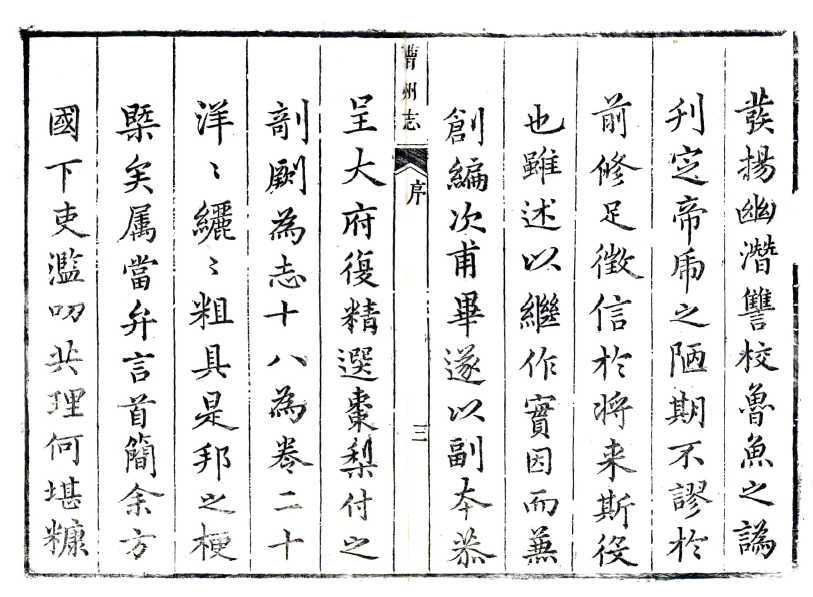 發揚幽潛讐校魯魚之譌
刋定帝虎之陋期不謬於
前修足徵信於將来斯役
也雖述以繼作實因而蕪
創編次甫畢遂以副本恭
曹州志
序
三
呈大府復精選棗梨付之
剖劂為志十八為卷二十
洋〻纚〻粗具是邦之梗
槩矣属當弁言首簡余方
國下吏濫叨共理何堪糠